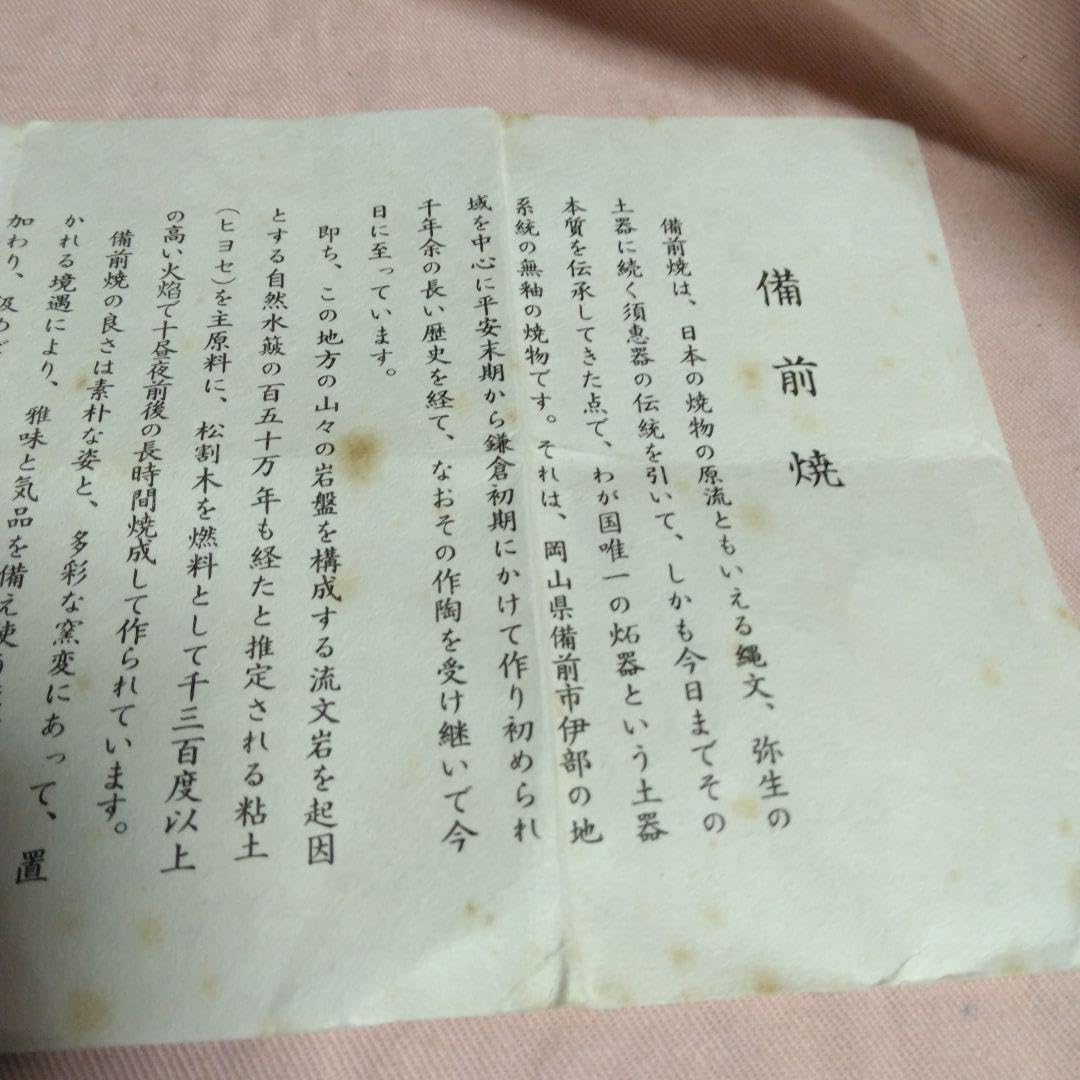 備前焼
備前焼は、日本の焼物の原流ともいえる縄文、弥生の
土器に続く須惠器の伝統を引いて、しかも今日までその
本質を伝承してきた点で、わが国唯一の炻器という土器
系統の無釉の焼物です。それは、岡山県備前市伊部の地
域を中心に平安末期から鎌倉初期にかけて作り初められ
千年余の長い歴史を経て、なおその作陶を受け継いで今
日に至っています。
即ち、この地方の山々の岩盤を構成する流文岩を起因
とする自然水簸の百五十万年も経たと推定される粘土
(ヒヨセ)を主原料に、松割木を燃料として千三百度以上
の高い火焰で十昼夜前後の長時間焼成して作られています。
備前焼の良さは素朴な姿と、多彩な窯変にあって、置
かれる境遇により、雅味と気品を備え使う
加わり、